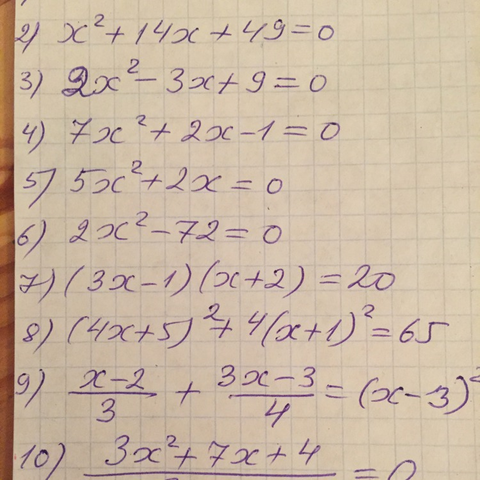 2) x² + 14x + 49 = 0
3) 2x² - 3x + 9 = 0
4) 7x² + 2x - 1 = 0
5) 5x² + 2x = 0
6) 2x² - 72 = 0
7) (3x - 1)(x + 2) = 20
8) (4x + 5)² + 4(x + 1)² = 65
9) (x - 2)/3 + (3x - 3)/4 = (x - 3)²
10) 3x² + 7x + 4 = 0